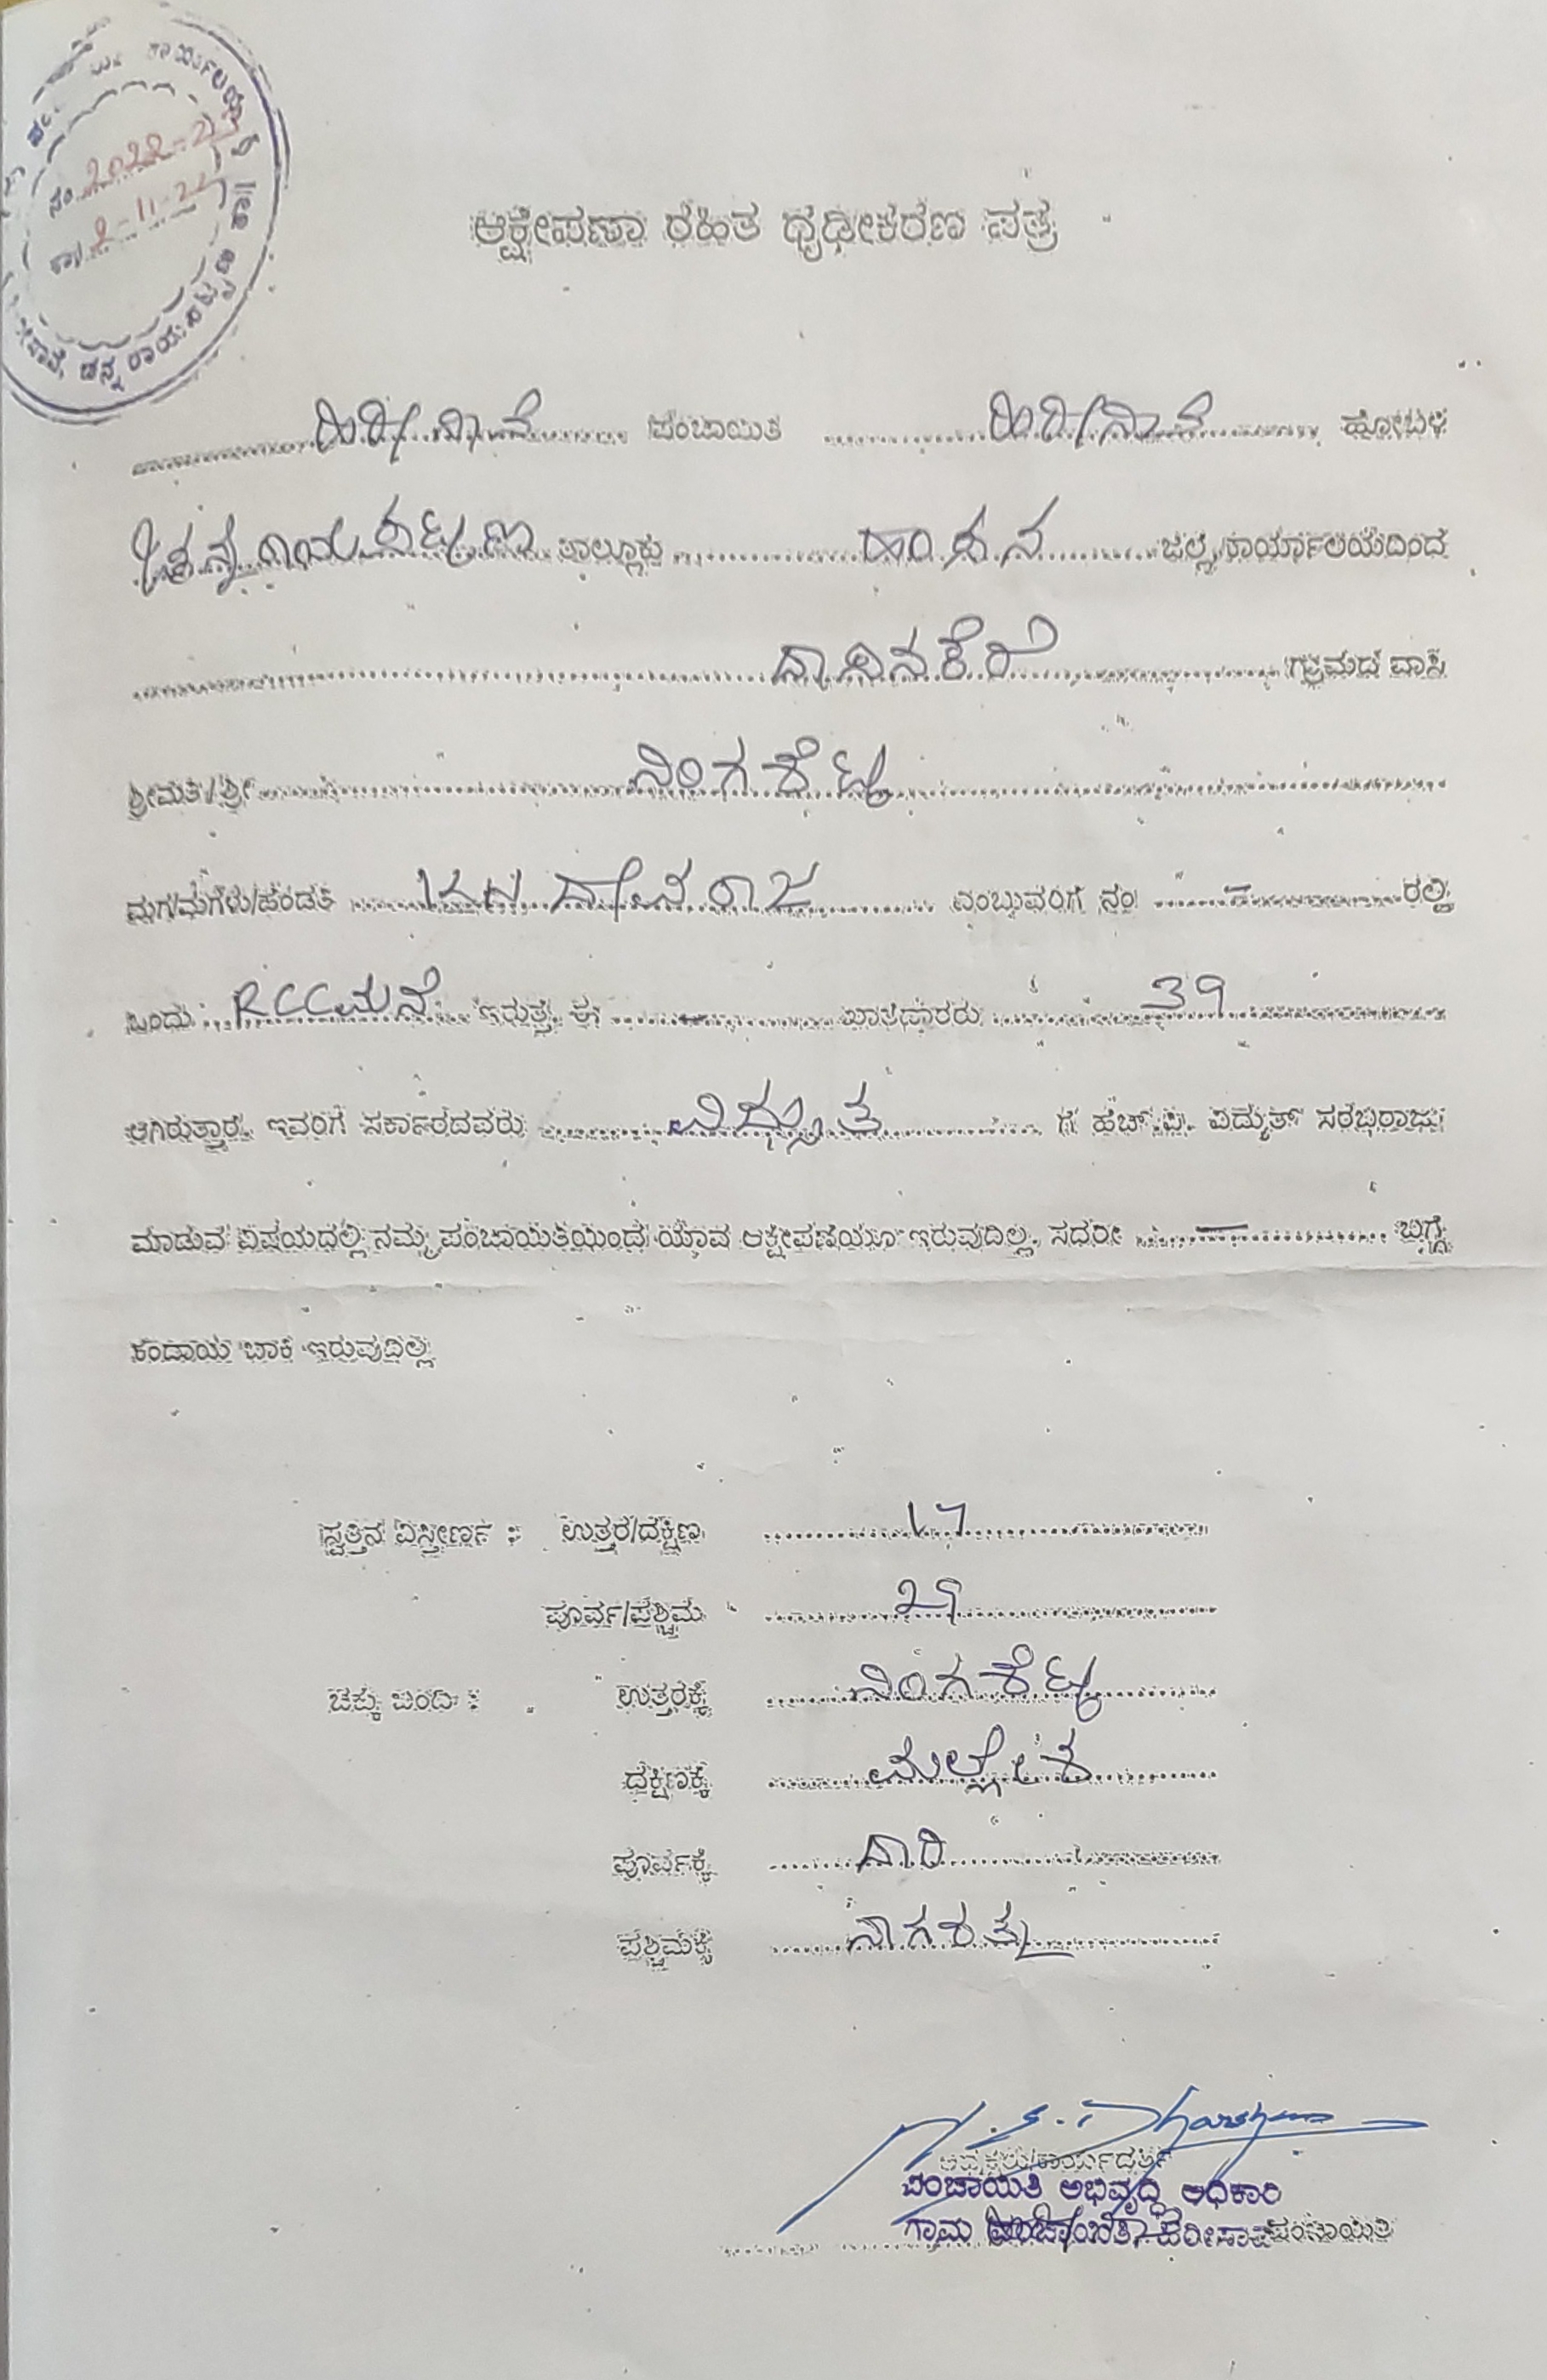 ನಂ 2022-23
2-11-22
ಆಕ್ಷೇಪಣಾ ರಹಿತ ಧೃಢೀಕರಣ ಪತ್ರ
ಹಿರೀಸಾವೆ ಪಂಚಾಯಿತಿ ಹಿರೀಸಾವೆ ಹೋಬಳಿ
ಚನ್ನರಾಯಪಟ್ಟಣ ತಾಲ್ಲೂಕು ಹಾಸನ ಜಿಲ್ಲೆ ಕಾರ್ಯಾಲಯದಿಂದ
ಗ್ರಾಮದ ವಾಸಿ
ಶ್ರೀಮತಿ/ಶ್ರೀ ನಿಂಗಶೆಟ್ಟಿ
ಮಗ/ಮಗಳು/ಹೆಂಡತಿ ದೇವರಾಜ ಎಂಬುವರಿಗೆ ನಂ - ರಲ್ಲಿ
ಒಂದು RCC ಮನೆ ಇರುತ್ತೆ ಈ - ಖಾತೆದಾರರು 39
ಆಗಿರುತ್ತಾರೆ. ಇವರಿಗೆ ಸರ್ಕಾರದವರು ವಿದ್ಯುತ ಗೆ ಹೆಚ್.ವಿ. ವಿದ್ಯುತ್ ಸರಬರಾಜು
ಮಾಡುವ ವಿಷಯದಲ್ಲಿ ನಮ್ಮ ಪಂಚಾಯಿತಿಯಿಂದ ಯಾವ ಆಕ್ಷೇಪಣೆಯೂ ಇರುವುದಿಲ್ಲ. ಸದರೀ - ಬಗ್ಗೆ
ಕಂದಾಯ ಬಾಕಿ ಇರುವುದಿಲ್ಲ
ಸ್ವತ್ತಿನ ವಿಸ್ತೀರ್ಣ : ಉತ್ತರ/ದಕ್ಷಿಣ 17
ಪೂರ್ವ/ಪಶ್ಚಿಮ 29
ಚಕ್ಕುಬಂದಿ : ಉತ್ತರಕ್ಕೆ ನಿಂಗಶೆಟ್ಟಿ
ದಕ್ಷಿಣಕ್ಕೆ ಮಲ್ಲೇಶ
ಪೂರ್ವಕ್ಕೆ ದಾರಿ
ಪಶ್ಚಿಮಕ್ಕೆ ನಾಗರತ್ನ
ಅಧ್ಯಕ್ಷರು/ಕಾರ್ಯದರ್ಶಿ
ಪಂಚಾಯಿತಿ ಅಭಿವೃದ್ಧಿ ಅಧಿಕಾರಿ
ಗ್ರಾಮ ಪಂಚಾಯಿತಿ, ಹಿರೀಸಾವೆ ಪಂಚಾಯಿತಿ